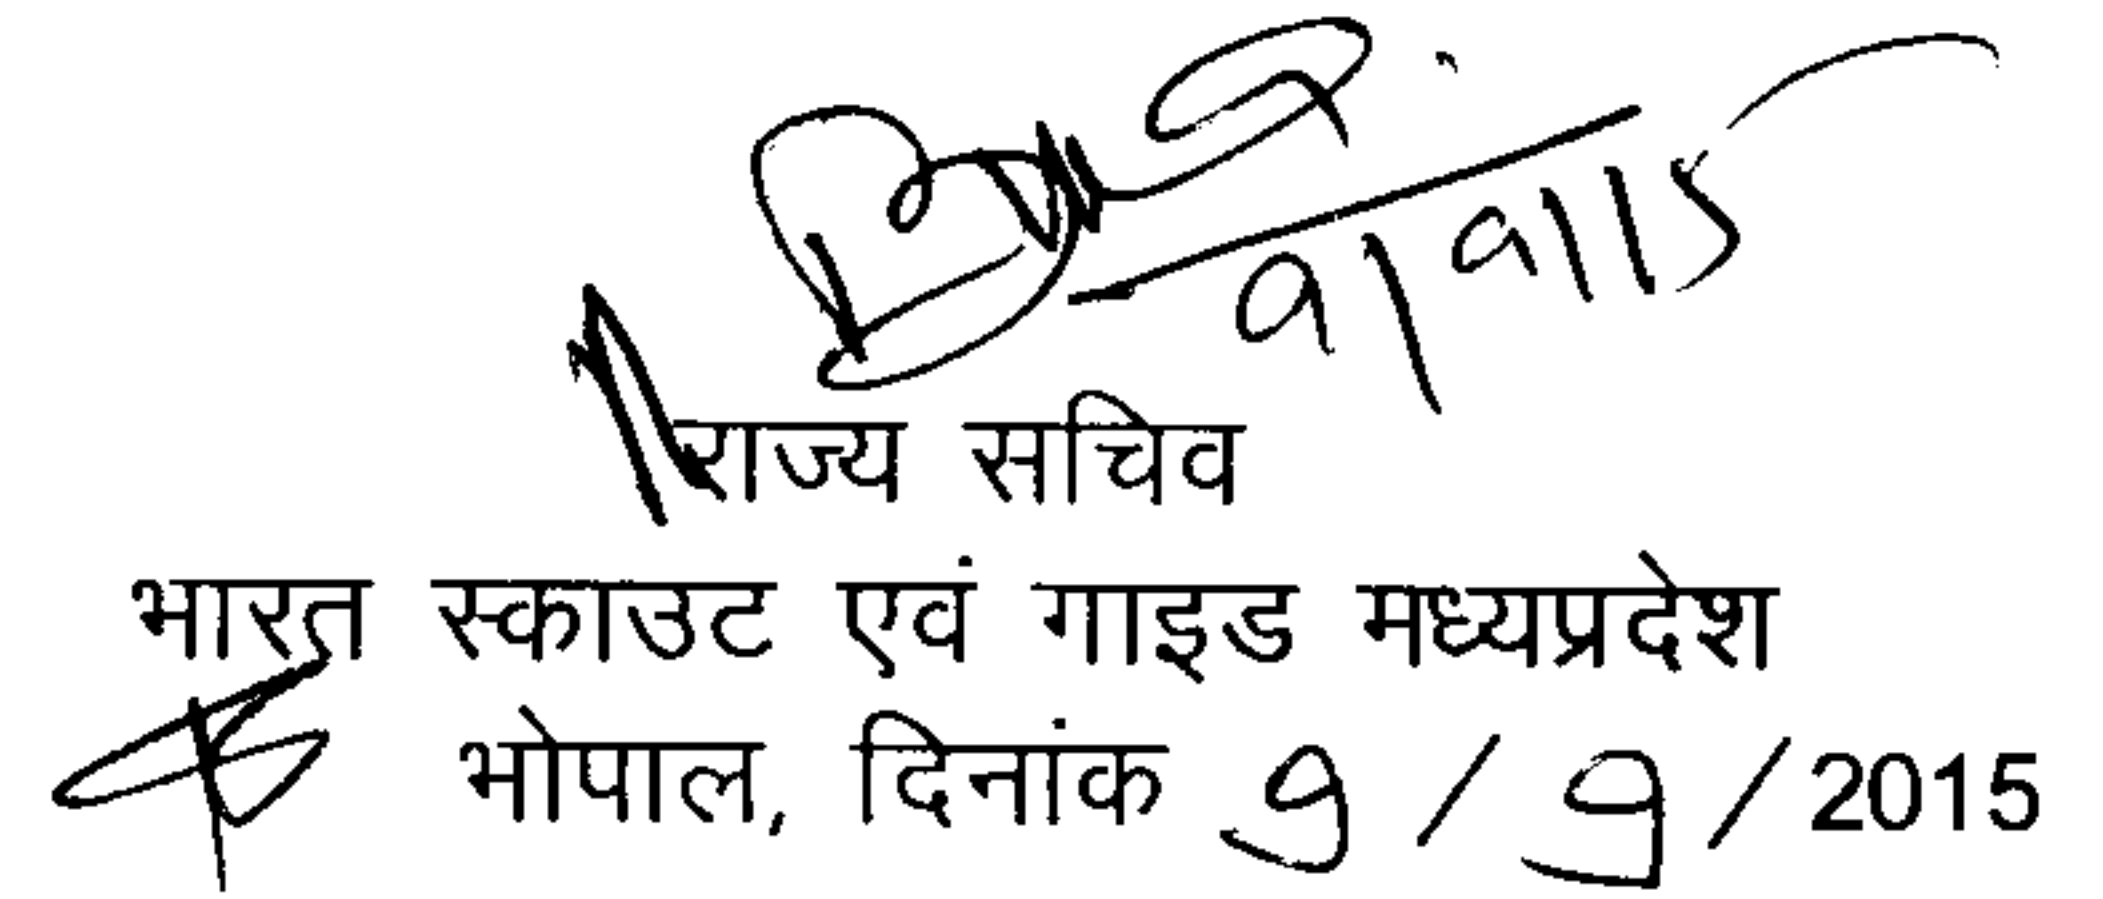 9/9/15
राज्य सचिव
भारत स्काउट एवं गाइड मध्यप्रदेश
भोपाल, दिनांक 9/9/2015